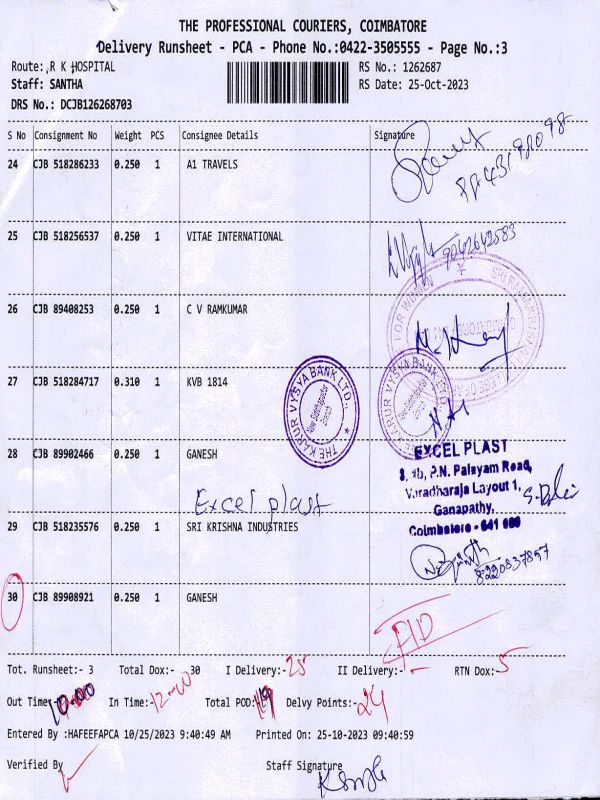 THE PROFESSIONAL COURIERS, COIMBATORE
Delivery Runsheet - PCA - Phone No.:0422-3505555 - Page No.:3
Route: R K HOSPITAL RS No.: 1262687
Staff: SANTHA RS Date: 25-Oct-2023
DRS No.: DCJB126268703
S No Consignment No Weight PCS Consignee Details Signature
24 CJB 518286233 0.250 1 A1 TRAVELS
25 CJB 518256537 0.250 1 VITAE INTERNATIONAL
9042642583
26 CJB 89408253 0.250 1 C V RAMKUMAR
27 CJB 518284717 0.310 1 KVB 1814
THE KARUR VYSYA BANK LTD.,
THE KARUR VYSYA BANK LTD.,
28 CJB 89902466 0.250 1 GANESH
EXCEL PLAST
P.N. Palayam Road,
Varadharaja Layout 1,
Ganapathy,
Coimbatore - 641
Excel plast
29 CJB 518235576 0.250 1 SRI KRISHNA INDUSTRIES
8220837857
30 CJB 89908921 0.250 1 GANESH
Tot. Runsheet:- 3 Total Dox:- 30 I Delivery:-25 II Delivery:- - RTN Dox:-5
Out Time:-10-00 In Time:-12-00 Total POD:-19 Delvy Points:-24
Entered By :HAFEEFAPCA 10/25/2023 9:40:49 AM Printed On: 25-10-2023 09:40:59
Verified By Staff Signature